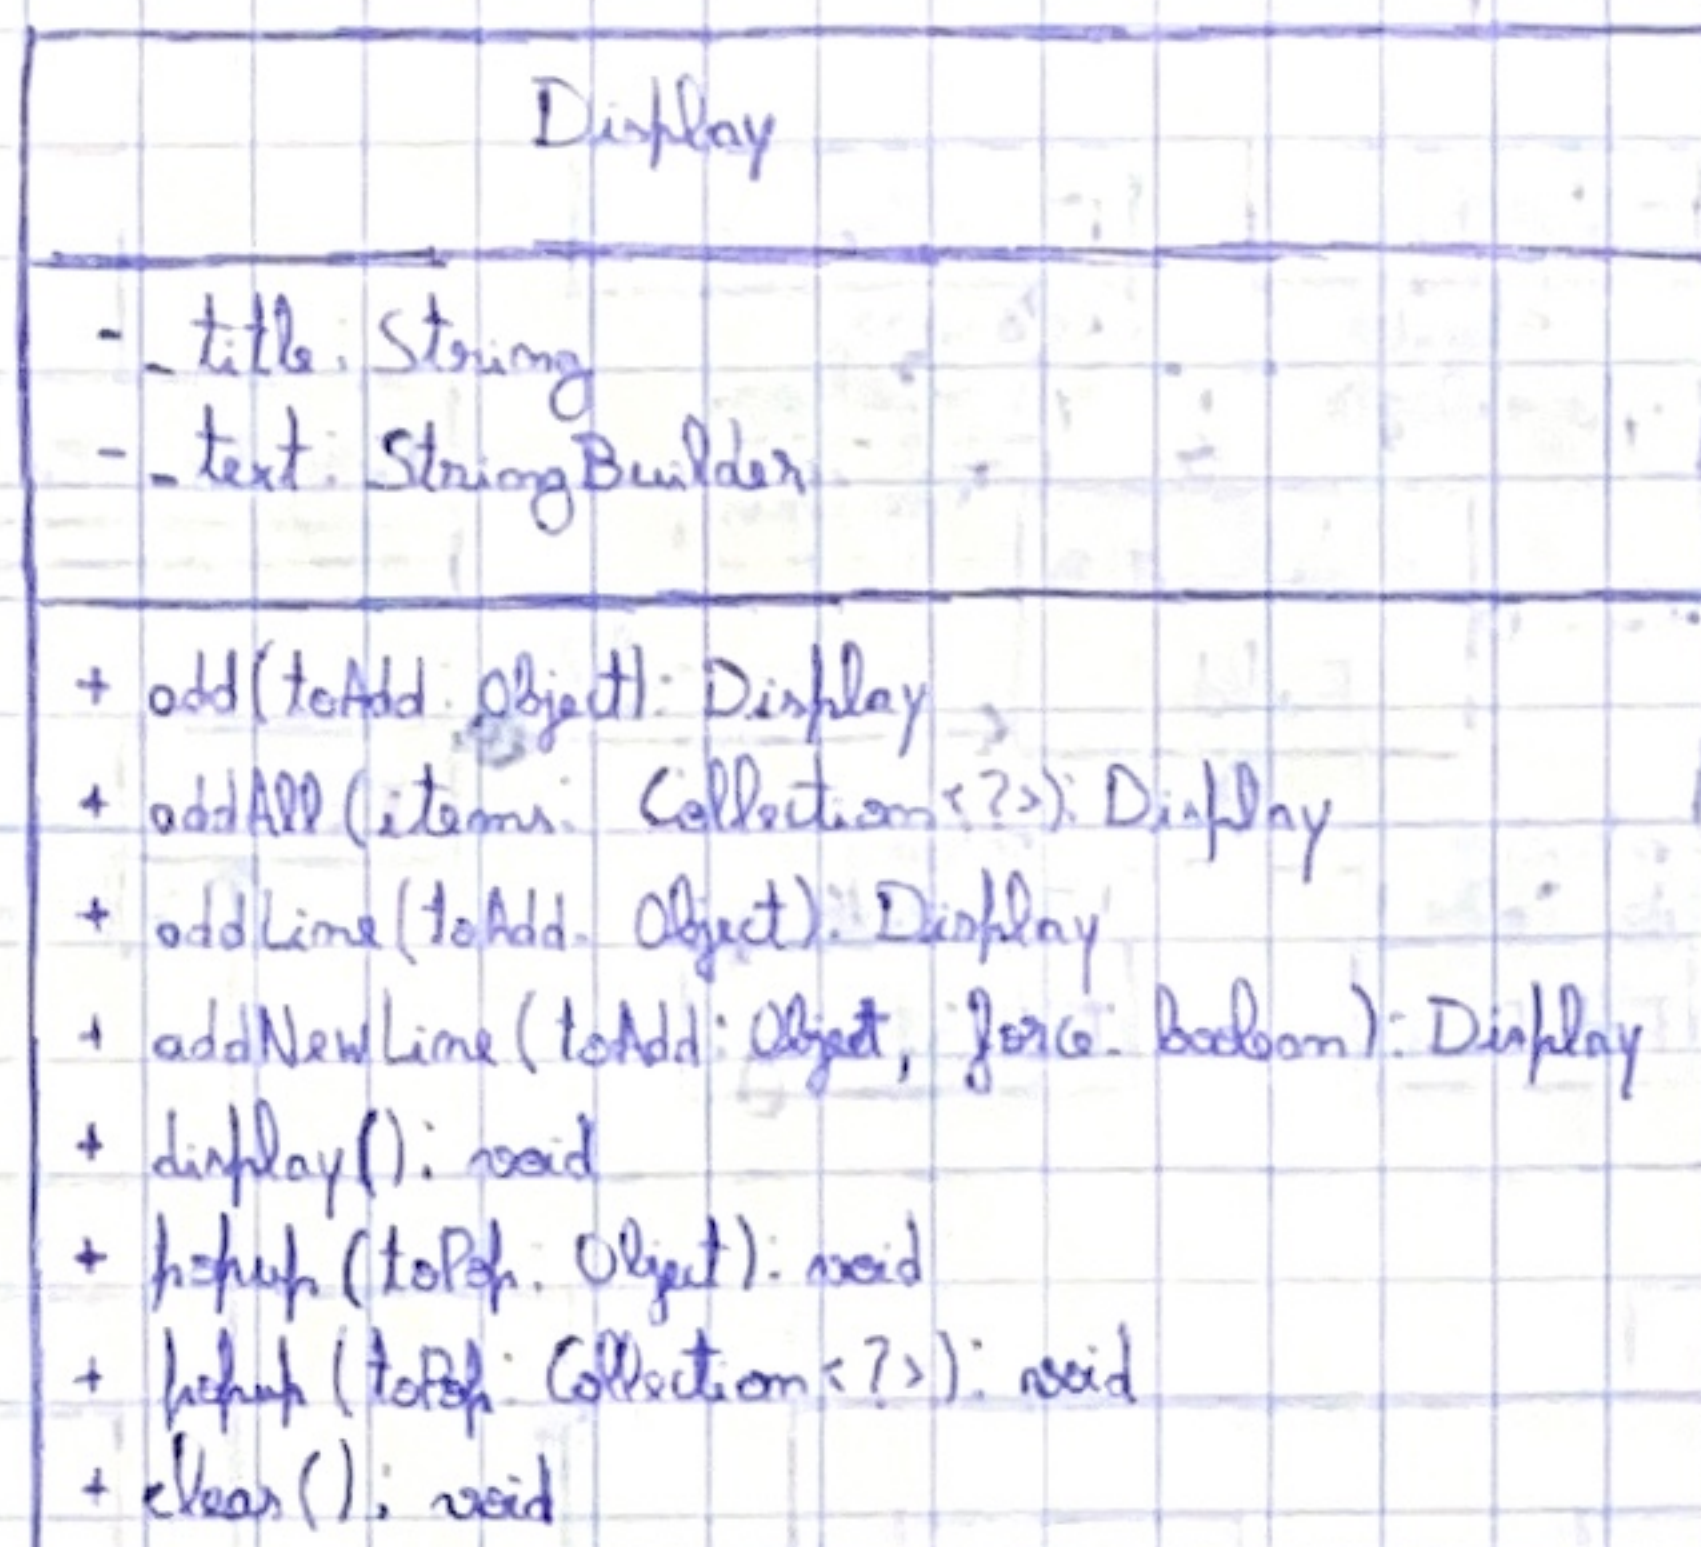 Display
- _title: String
- _text: StringBuilder
+ add(toAdd: Object): Display
+ addAll(items: Collection<?>): Display
+ addLine(toAdd: Object): Display
+ addNewLine(toAdd: Object, force: boolean): Display
+ display(): void
+ popup(toPop: Object): void
+ popup(toPop: Collection<?>): void
+ clear(): void